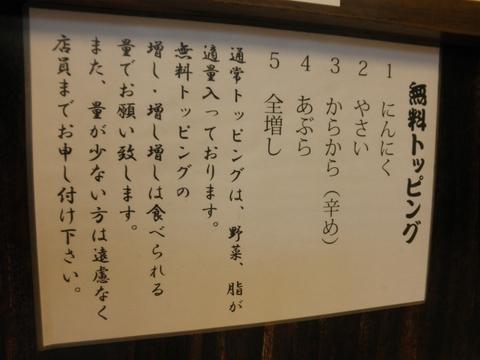 無料トッピング
1 にんにく
2 やさい
3 からから（辛め）
4 あぶら
5 全増し
通常トッピングは、野菜、脂が
適量入っております。
無料トッピングの
増し・増し増しは食べられる
量でお願い致します。
また、量が少ない方は遠慮なく
店員までお申し付け下さい。